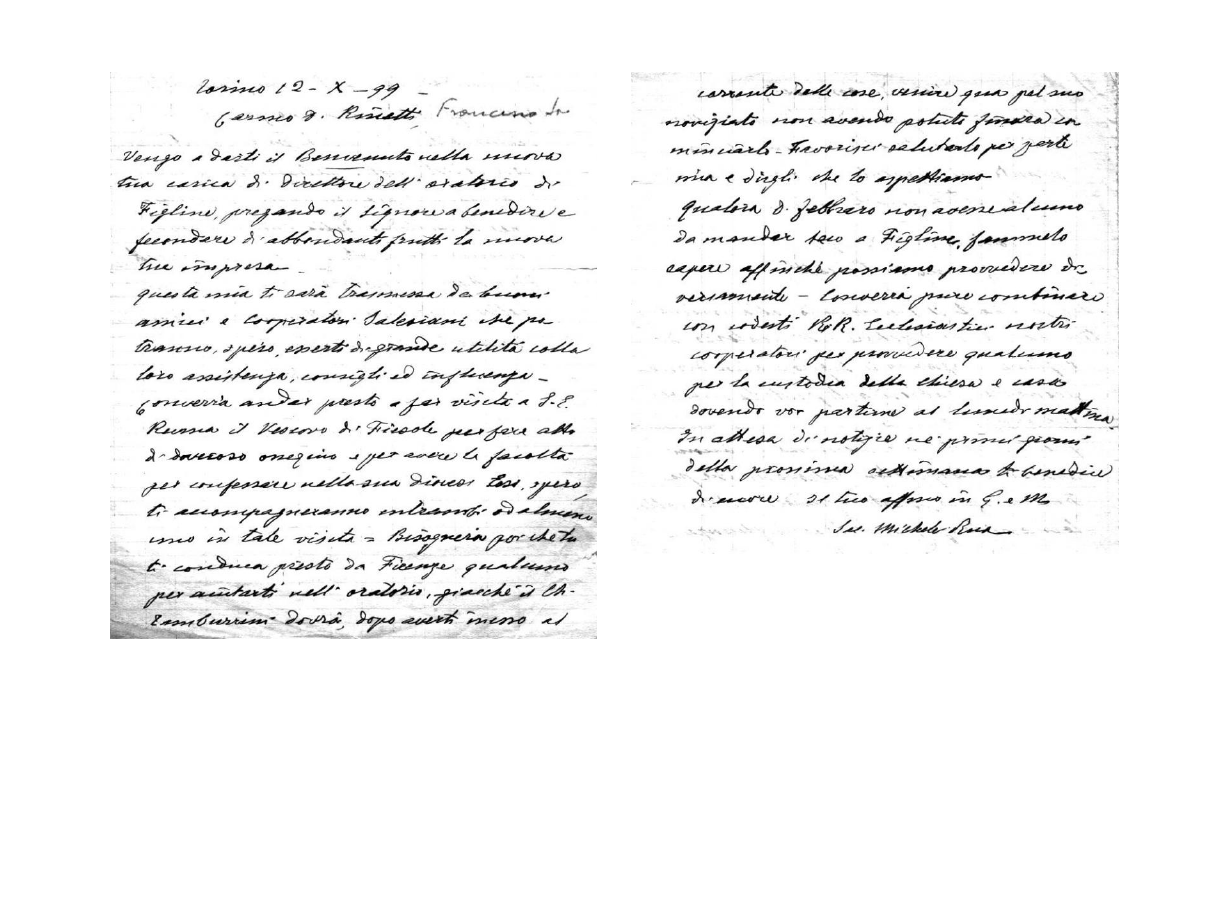 Torino 12 - X - 99 -
Carmo D. Rinetti, Francesco
Vengo a darti il Benvenuto nella nuova
tua carica di direttore dell' oratorio di
Figline, pregando il Signore a benedire e
fecondare di abbondanti frutti la nuova
tua impresa -
questa mia ti sarà trasmessa da buoni
amici e Cooperatori Salesiani che po
tranno, spero, esserti di grande utilità colla
loro assistenza, consigli ed influenza -
Converrà andar presto a far visita a S. E.
Revma il Vescovo di Fiesole per fare atto
di doveroso ossequio e per avere le facoltà
per confessare nella sua diocesi. Essi, spero,
ti accompagneranno entrambi od almeno
uno in tale visita = Bisognerà poi che tu
ti conduca presto da Firenze qualcuno
per aiutarti nell' oratorio, giacchè il Ch.
Tamburrini dovrà, dopo averti messo al
corrente delle cose, venire qua pel suo
noviziato non avendo potuto finora co
minciarlo - Favorisci salutarlo per parte
mia e digli che lo aspettiamo
Qualora D. Febbraro non avesse alcuno
da mandar teco a Figline, fammelo
sapere affinchè possiamo provvedere di
versamente - Converrà pure combinare
con codesti RR. Ecclesiastici nostri
cooperatori per provvedere qualcuno
per la custodia della Chiesa e casa
dovendo voi partirne al lunedì mattina.
In attesa di notizie ne' primi giorni
della prossima settimana ti benedice
di cuore il tuo affmo in G. e M.
Sac. Michele Rua